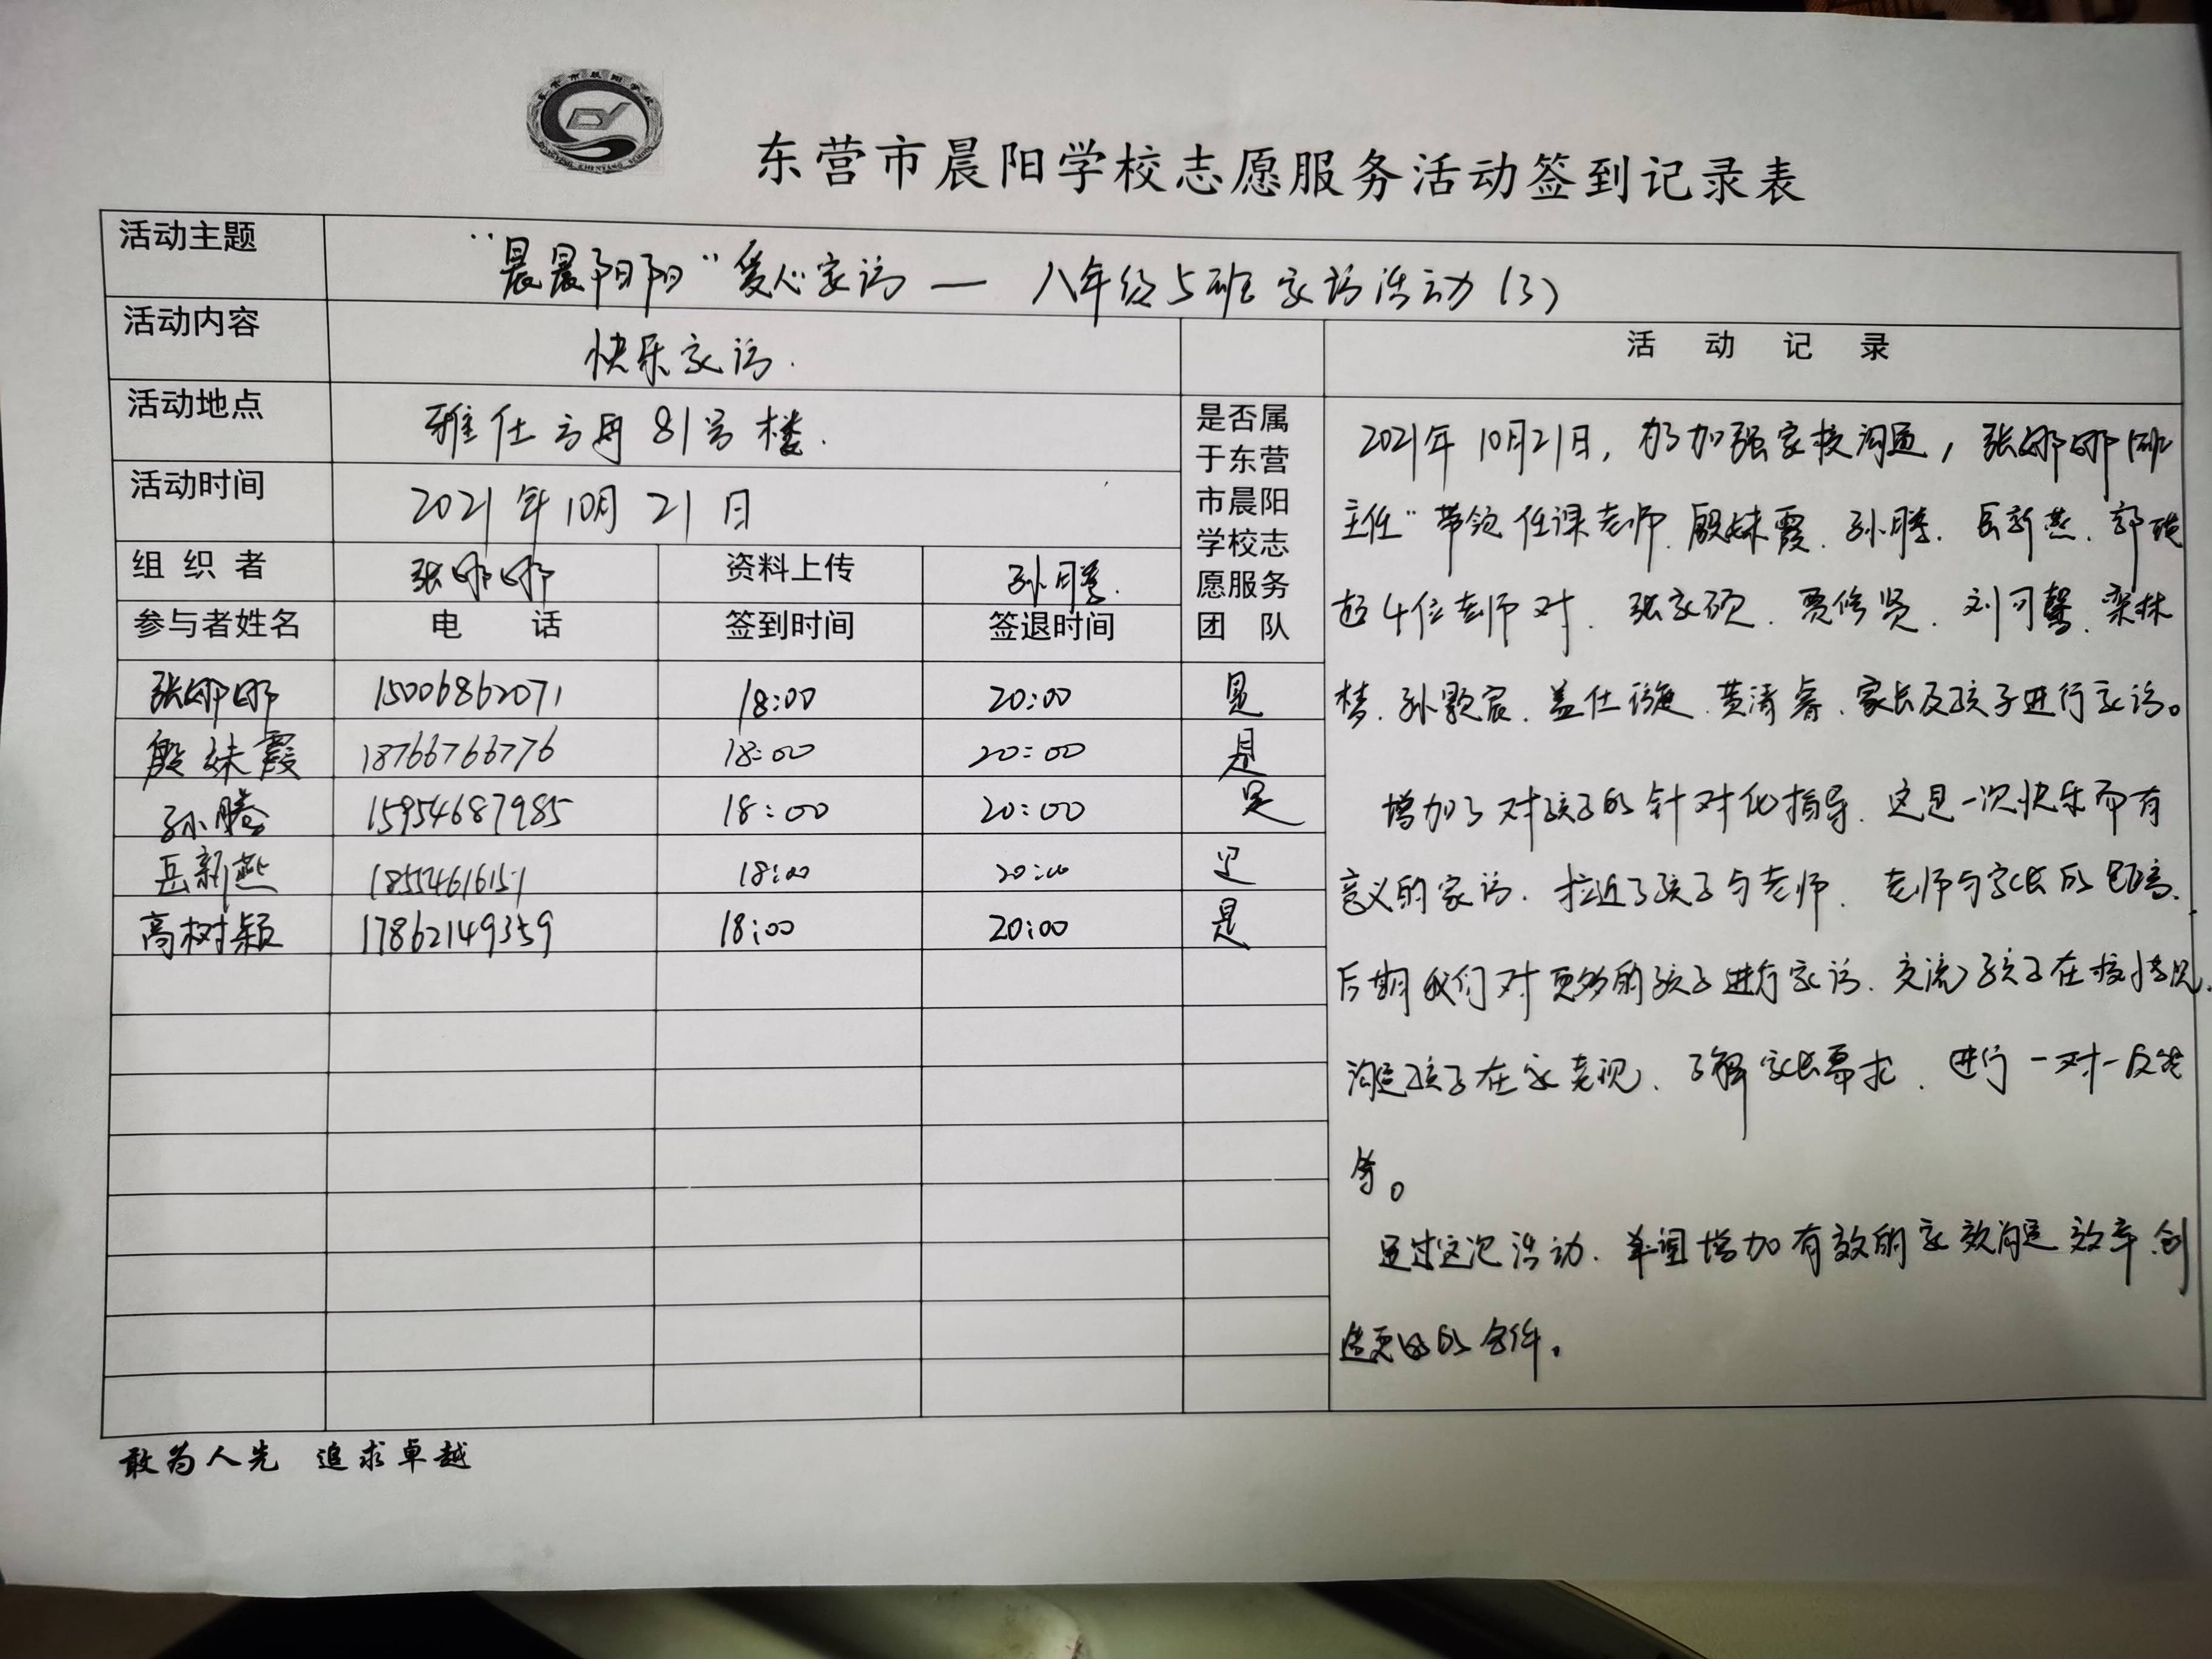 东营市晨阳学校志愿服务活动签到记录表
活动主题 "晨晨阳阳"爱心家访 — 八年级5班家访活动(3)
活动内容 快乐家访.
活动地点 雅仕方舟81号楼.
活动时间 2021年10月21日
组织者 张娜娜 资料上传 孙腾.
参与者姓名 电话 签到时间 签退时间
是否属
于东营
市晨阳
学校志
愿服务
团队
张娜娜 15006862071 18:00 20:00 是
殷妹霞 18766766776 18:00 20:00 是
孙腾 15954687985 18:00 20:00 是
岳新燕 18:00 20:00 是
高树颖 17862149359 18:00 20:00 是
活动记录
2021年10月21日,为了加强家校沟通,张娜娜班
主任"带领任课老师.殷妹霞.孙腾.岳新燕.郭
4位老师对.张家硕.贾修贤.刘可馨.栾林
梦.孙颢宸.盖仕璇.黄清睿.家长及孩子进行家访。
增加了对孩子的针对化指导.这是一次快乐而有
意义的家访.拉近了孩子与老师.老师与家长的距离.
后期我们对更多的孩子进行家访.交流孩子在校情况.
沟通孩子在家表现.了解家长需求.进行一对一反馈
等。
通过这次活动.增加有效的家校沟通效率.创
造更好的条件。
敢为人先 追求卓越